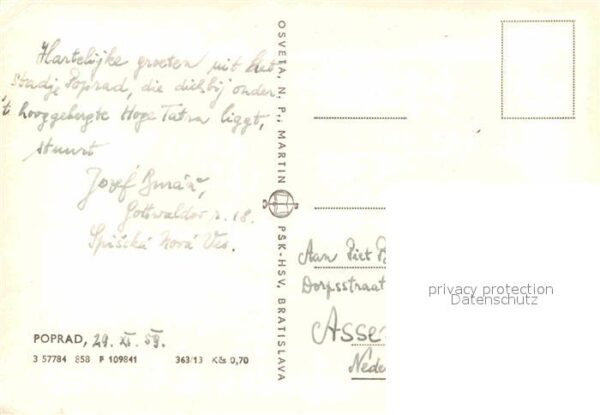 Hartelijke groeten uit het
stadje Poprad, die dichbij onder
't hooggebergte Hoge Tatra liggt,
stuurt
Jozef
Gottwaldov r. 18.
Spišská Nová Ves.
POPRAD, 29. XI. 59.
3 57784 858 F 109841 363/13 Kčs 0,70
OSVETA, N. P., MARTIN
PSK-HSV, BRATISLAVA
Aan Piet
Dorpsstraat
Asse
Nede
privacy protection
Datenschutz